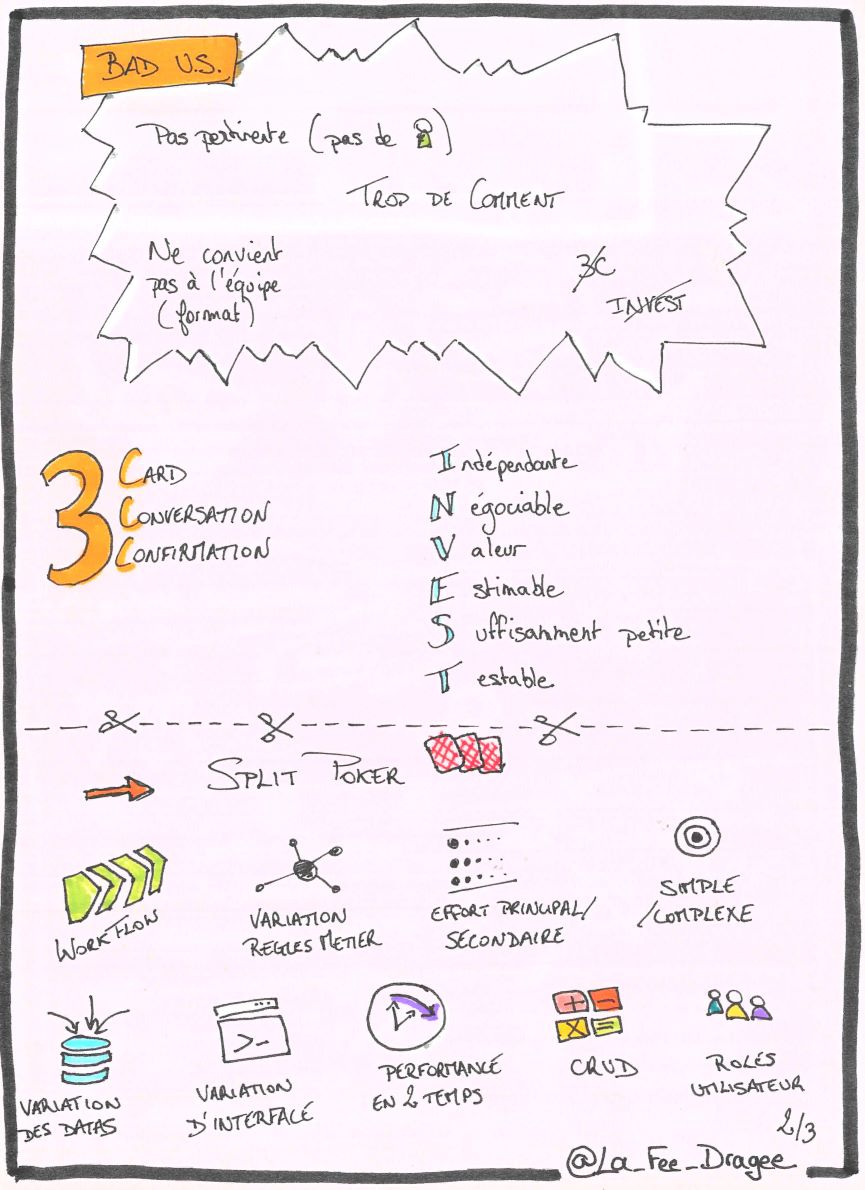 BAD U.S.
Pas pertinente (pas de )
TROP DE COMMENT
Ne convient
pas à l'équipe
(format)
3C
INVEST
3
CARD
CONVERSATION
CONFIRMATION
Indépendante
Négociable
Valeur
Estimable
Suffisamment petite
Testable
SPLIT POKER
WORKFLOW
VARIATION
REGLES METIER
EFFORT PRINCIPAL/
SECONDAIRE
SIMPLE
/COMPLEXE
VARIATION
DES DATAS
>_
VARIATION
D'INTERFACE
PERFORMANCE
EN 2 TEMPS
+ -
X =
CRUD
ROLES
UTILISATEUR
2/3
@La_Fee_Dragee